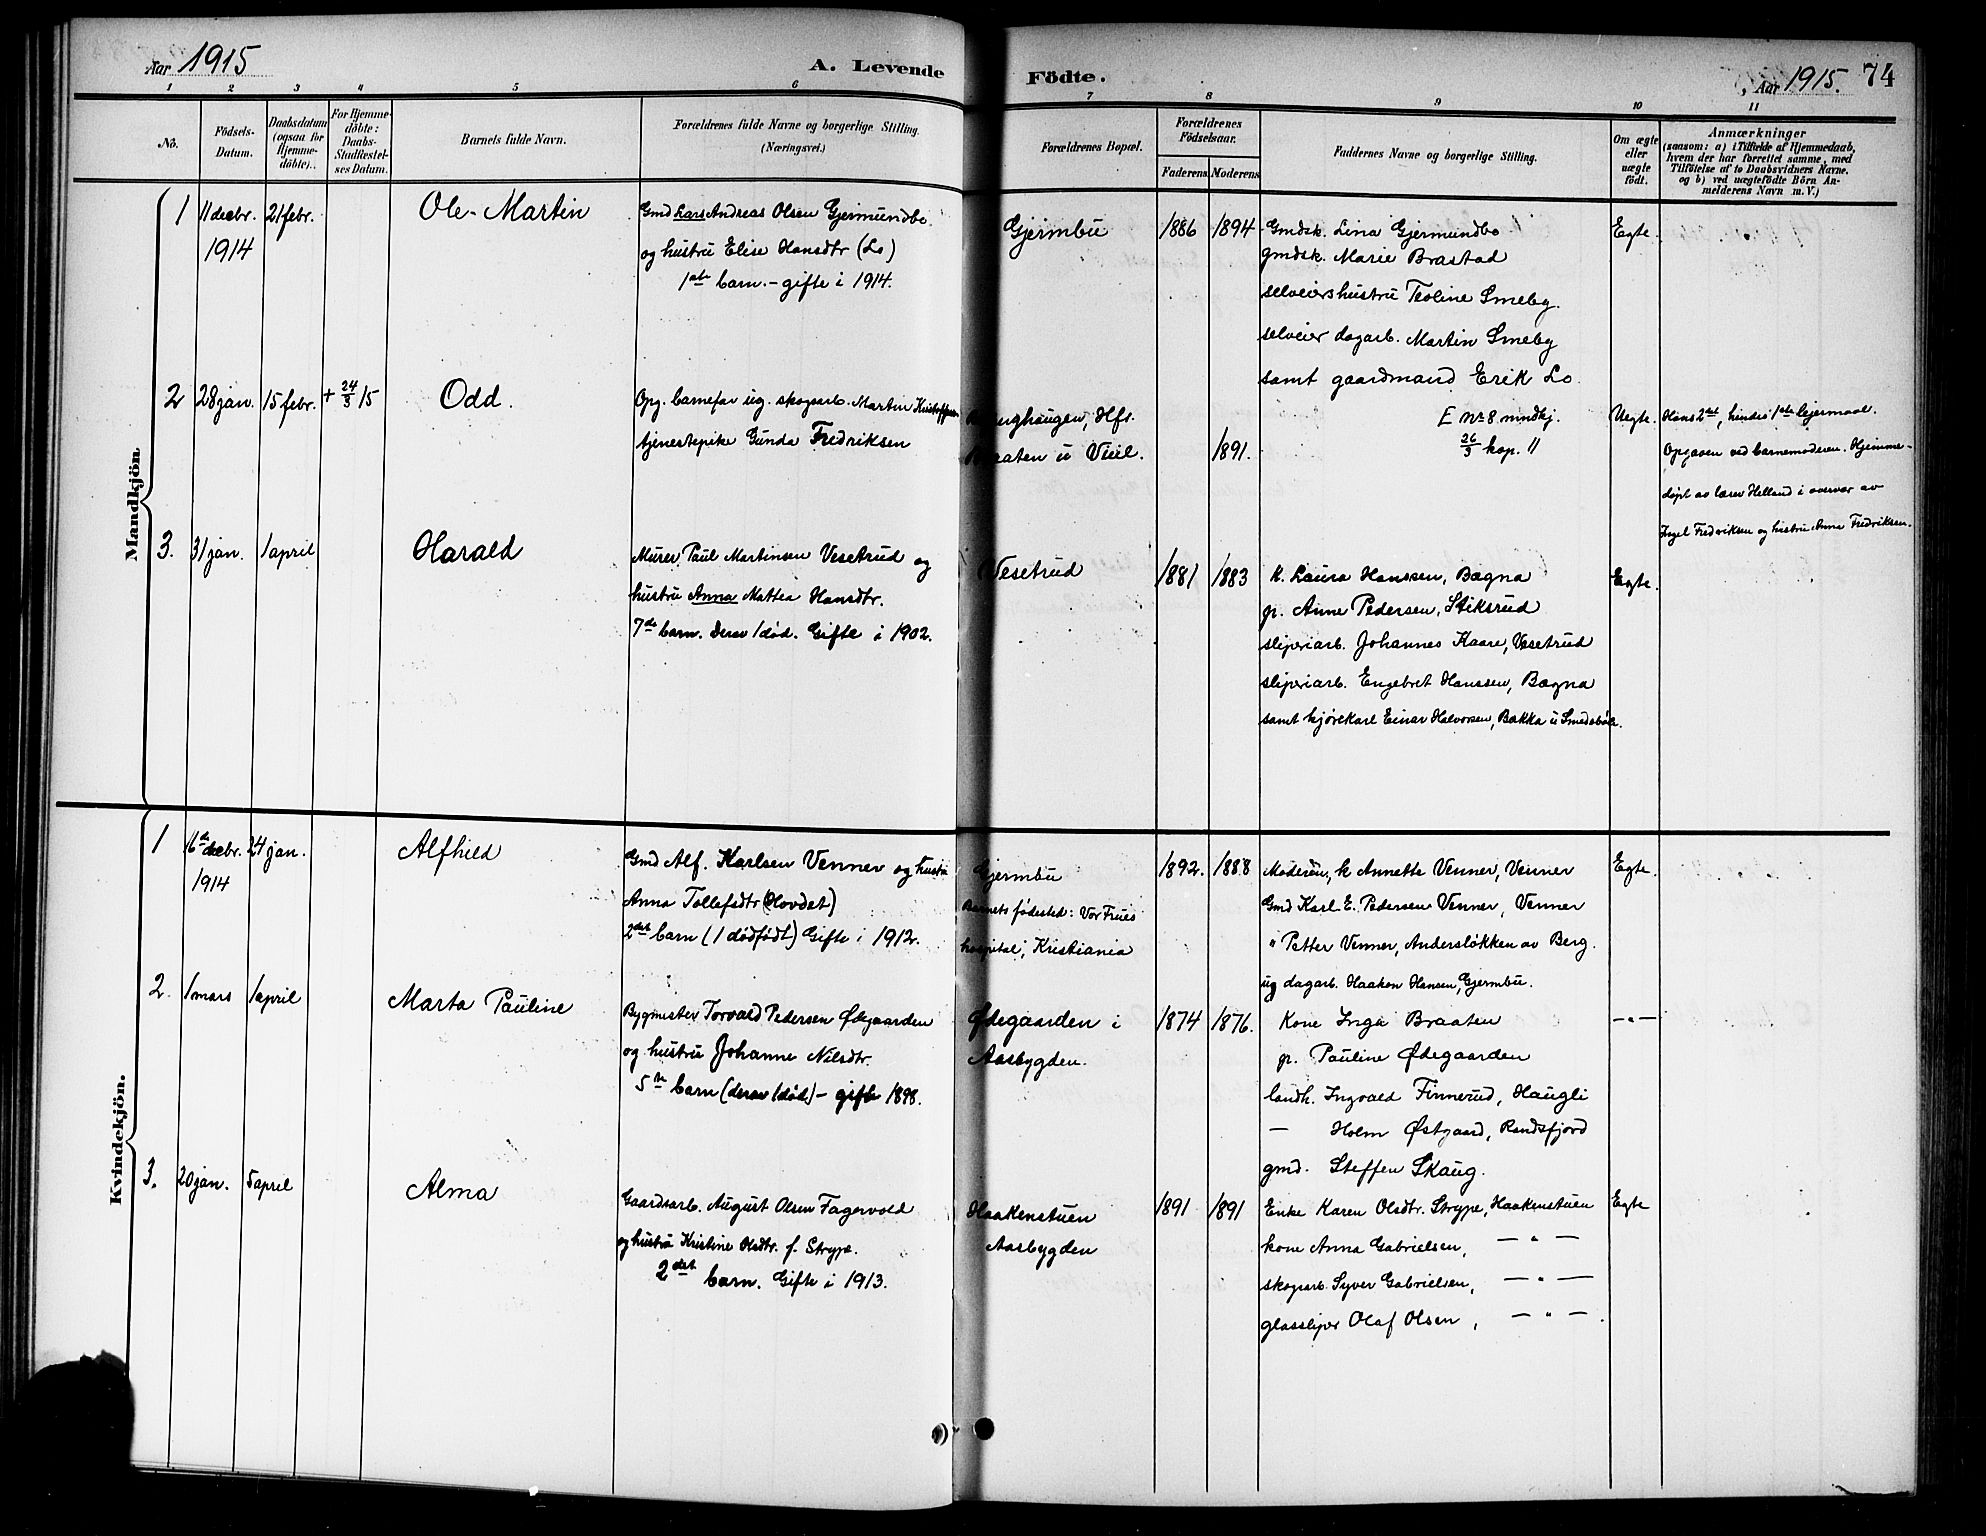 Aar 1915
A. Levende
Födte.
, Aar 1915. 74
1 2 3 4 5 6 7 8 9 10 11
No.
Födsels-
Datum.
Daabsdatum
(ogsaa for
Hjemme-
döbte).
For Hjemme-
döbte:
Daabs-
Stadfæstel-
ses Datum.
Barnets fulde Navn.
Forældrenes fulde Navne og borgerlige Stilling.
(Næringsvei.)
Forældrenes Bopæl.
Forældrenes
Födselsaar.
Faderens Moderens
Faddernes Navne og borgerlige Stilling.
Om ægte
eller
uægte
födt.
Anmærkninger
(saasom: a) i Tilfælde af Hjemmedaab,
hvem der har forrettet samme, med
Tilföielse af to Daabsvidners Navne.
og b) ved uægtefödte Börn An-
melderens Navn m. V.)
Mandkjön.
1 11 decbr. 21 febr. Ole-Martin
1914
Gmd Lars Andreas Olsen Gjermundbo
og hustru Elise Hansdtr (Lo)
1ste barn. - gifte i 1914.
Gjermbu 1886 1894
Gmdsk. Lina Gjermundbo
gmdsk. Marie Brastad
selveiershustru Teoline Smeby.
selveier dagarb. Martin Smeby
samt gaardmand Erik Lo.
Egte.
2 28 jan. 15 febr. + 24/3 15 Odd.
Opg. barnefar ug. skogsarb. Martin Kristoffersen
tjenestepike Gunda Fredriksen
Hfs.
Braaten u Viul. 1891.
E No 8 mndkj.
26/3 kop. 11
Uegte.
Hans 2det, hendes 1ste leiermaal.
Opgaven ved barnemoderen. Hjemme-
døpt av lærer Helland i overvær av
Ingel Fredriksen og hustru Anna Fredriksen.
3. 31 jan. 1 april Harald
Murer Paul Martinsen Vesetrud og
hustru Anna Mattea Hansdtr.
7de barn. Derav 1 død. Gifte i 1902.
Vesetrud 1881 1883
k. Laura Hanssen, Bægna
p. Anne Pedersen, Stiksrud
sliperiarb. Johannes Kaare, Vesetrud
sliperiarb. Engebret Hanssen, Bægna
samt kjørekarl Einar Halvorsen, Bakka u Smedsbøle.
Egte.
Kvindekjön.
1 16de decbr. 24 jan. Alfhild
1914
Gmd Alf. Karlsen Venner og hustru
Anna Tollefsdtr (Hovdet)
2det barn (1 dødfødt) Gifte i 1912.
Gjermbu
Barnets fødested: Vor Frues
hospital, Kristiania
1892. 1888
Moderen, k Annette Venner, Venner
Gmd Karl E. Pedersen Venner, Venner
" Petter Venner, Andersløkken av Berg.
ug dagarb. Haakon Hansen, Gjermbu.
Egte.
2. 1 mars 1 april Marta Pauline
Bygmester Torvald Pedersen Ødegaarden
og hustru Johanne Nilsdtr.
5te barn (derav 1 død.) - gifte 1898.
Ødegaarden i
Aasbygden.
1874 1876.
Kone Inga Braaten
p. Pauline Ødegaarden
landh. Ingvald Finnerud, Haugli
— Holm Østgaard, Randsfjord
gmd. Steffen Skaug.
— " —
3. 20 jan. 5 april Alma
Gaardsarb. August Olsen Fagervold
og hustru Kristine Olsdtr. f. Strype.
2det barn. Gifte i 1913.
Haakenstuen
Aasbygden
1891 1891
Enke Karen Olsdtr. Strype, Haakenstuen
kone Anna Gabrielsen, — " —
skogarb. Syver Gabrielsen, — " —
glassliper Olaf Olsen, — " —
Egte